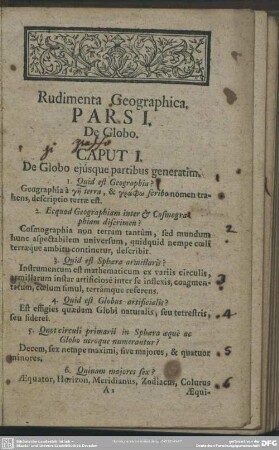 Rudimenta Geographica,
PARS I.
De Globo.
CAPUT I.
De Globo ejúsque partibus generatim.
1. Quid est Geographia?
Geographia à γῆ terra, & γράφω scribo nomen trahens, descriptio terræ est.
2. Ecquod Geographiam inter & Cosmographiam discrimen?
Cosmographia non terram tantùm, sed mundum
hunc aspectabilem universum, quidquid nempe cœli
terræque ambitu continetur, describit.
3. Quid est Sphæra armillaris?
Instrumentum est mathematicum ex variis circulis,
armillarum instar artificiosè inter se inflexis, coagmentatum, cœlum simul, terrámque referens.
4. Quid est Globus artificialis?
Est effigies quædam Globi naturalis, seu terrestris,
seu siderei.
5. Quot circuli primarii in Sphæra æquè ac
Globo utroque numerantur?
Decem, sex nempe maximi, sive majores, & quatuor
minores.
6. Quinam majores sex?
Æquator, Horizon, Meridianus, Zodiacus, Colurus
A Æqui-
1
2
3
4
5
6